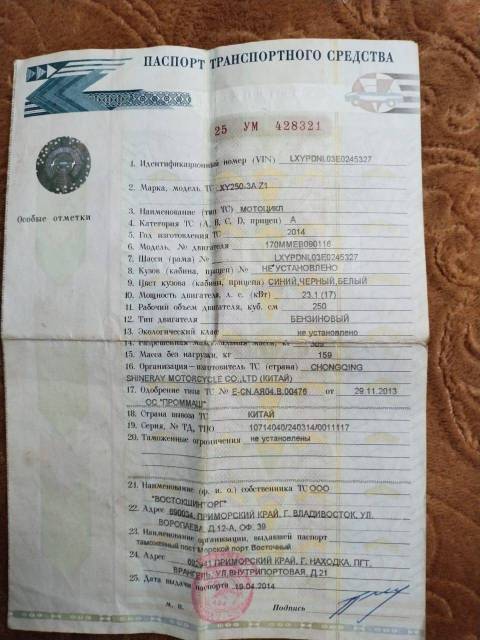 ПАСПОРТ ТРАНСПОРТНОГО СРЕДСТВА
25 УМ 428321
Особые отметки
1. Идентификационный номер (VIN) LXYPDNL03E0245327
2. Марка, модель ТС XY250-3A Z1
3. Наименование (тип ТС) МОТОЦИКЛ
4. Категория ТС (A, B, C, D, прицеп) A
5. Год изготовления ТС 2014
6. Модель, № двигателя 170MMEB090116
7. Шасси (рама) № LXYPDNL03E0245327
8. Кузов (кабина, прицеп) № НЕ УСТАНОВЛЕНО
9. Цвет кузова (кабины, прицепа) СИНИЙ,ЧЕРНЫЙ,БЕЛЫЙ
10. Мощность двигателя, л. с. (кВт) 23.1 (17)
11. Рабочий объем двигателя, куб. см 250
12. Тип двигателя БЕНЗИНОВЫЙ
13. Экологический класс не установлено
14. Разрешенная максимальная масса, кг 309
15. Масса без нагрузки, кг 159
16. Организация-изготовитель ТС (страна) CHONGQING
SHINERAY MOTORCYCLE CO.,LTD (КИТАЙ)
17. Одобрение типа ТС № E-CN.АЯ04.B.00476 от 29.11.2013
ОС "ПРОММАШ"
18. Страна вывоза ТС КИТАЙ
19. Серия, № ТД, ТПО 10714040/240314/0011117
20. Таможенные ограничения не установлены
21. Наименование (ф. и. о.) собственника ТС ООО
"ВОСТОКШИНТОРГ"
22. Адрес 690034, ПРИМОРСКИЙ КРАЙ, Г. ВЛАДИВОСТОК, УЛ.
ВОРОПАЕВА, Д.12-А, ОФ. 39
23. Наименование организации, выдавшей паспорт
таможенный пост Морской порт Восточный
24. Адрес 692941 ПРИМОРСКИЙ КРАЙ, Г. НАХОДКА, ПГТ.
ВРАНГЕЛЬ, УЛ.ВНУТРИПОРТОВАЯ, Д.21
25. Дата выдачи паспорта 19.04.2014
М. П. Подпись